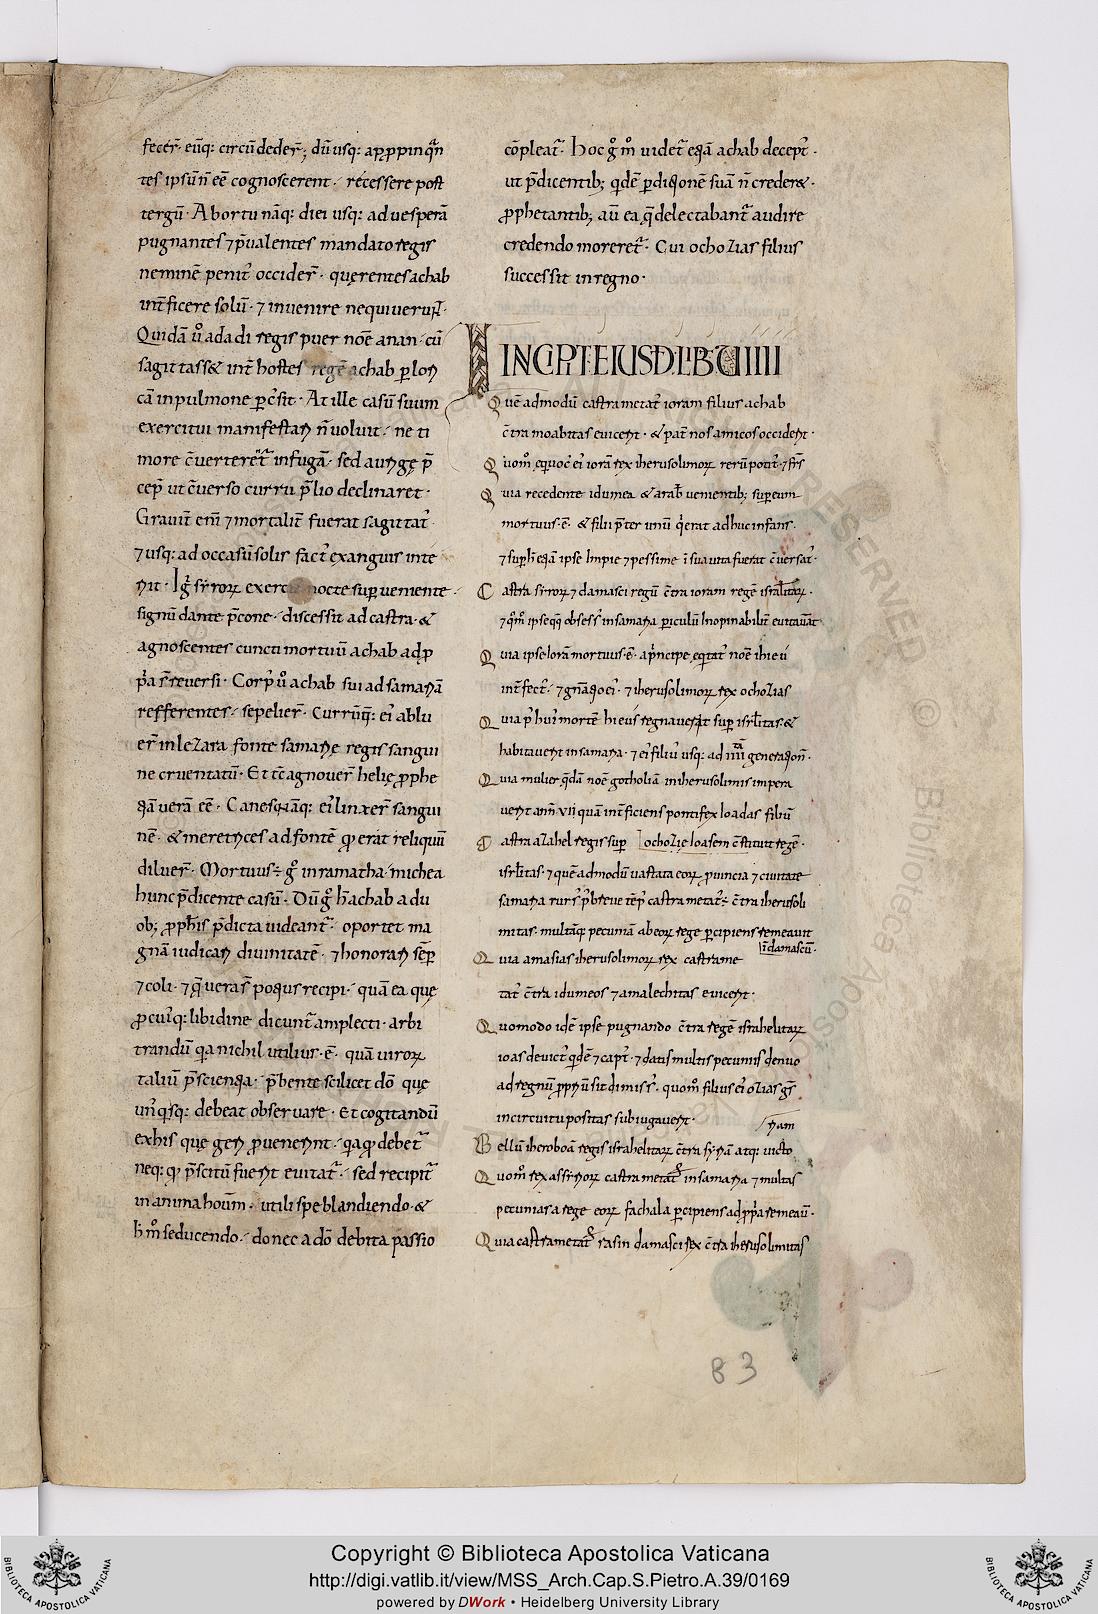 fecer̄. eūq: circūdeder̄; dū usq: appropinq̄n
tes ipsū n̄ eē cognoscerent. recessere post
tergū. Abortu nāq: diei usq: ad uesperā
pugnantes ⁊ p̄ualentes mandato regis
neminē penit᷒ occider̄. quęrentes achab
int̄ficere solū. ⁊ inuenire nequiuerunt̄.
Quidā ů adadi regis puer noē anan. cū
sagittass& int̄ hostes regē achab ꝑ lori
cā in pulmone ꝑc̄sit. At ille casū suum
exercitui manifestari n̄ uoluit. ne ti
more c̄uerteret̄ in fugā. sed aurigę p̄
cep̄ ut c̄uerso curru p̄lio declinaret.
Grauit̄ eni ⁊ mortalit̄ fuerat sagittat᷒
⁊ usq: ad occasū solis fact᷒ exanguis inte
riit. Iḡ syroꝝ exerci nocte superueniente
signū dante p̄cone. discessit ad castra. &
agnoscentes cuncti mortuū achab ad ꝓp
p̄a s̄ reuersi. Corp᷒ ů achab sui ad samariā
refferentes. sepelier̄. Currūq̄: ei᷒ ablu
er̄ in lezara fonte samarię regis sangui
ne cruentatū. Et tc̄ agnouer̄ helię ꝓphe
tiā uerā eē. Canes nāq: ei᷒ linxer̄ sangui
nē. & meretrices ad fontē qͦ erat reliquū
diluer̄. Mortuus ÷ ḡ in ramatha. michea
hunc p̄dicente casū. Dū ḡ h̄ achab a du
ob; ꝓph̄is p̄dicta uideant̄. oportet ma
gnā iudicari diuinitatē. ⁊ honorari sēp
⁊ coli. ⁊ q̄ uera s̄ potius recipi. quā ea quę
ꝓ cui᷒q: libidine dicunt̄ amplecti. arbi
trandū q̇a nichil utilius. ē. quā uiroꝝ
taliū p̄scientia. p̄bente scilicet dō quę
un᷒q̇sq: debeat obseruare. Et cogitandū
ex his quę geri ꝓuenerint. q̇a qͦ debet̄
neq: qͦ p̄scitū fuerit euitat̄. sed recipit̄
in anima hoūm. utili spe blandiendo. &
h̄ m̊ seducendo. donec a dō debita passio
cōpleat̄. Hoc ḡ m̊ uidet̄ etiā achab decept᷒.
ut p̄dicentib; q̇dē ꝑditionē suā n̄ creder&.
ꝓphetantib; aū ea q̄ delectabant̄ audire
credendo moreret̄. Cui ochozias filius
successit in regno.
INCIPIT EIUSD. LIB. VIIII
Quē admodū castra metat᷒ ioram filius achab
c̄tra moabitas euicerit. & pat̄nos amicos occiderit.
Quom̊ equoc᷒ ei᷒ iorā rex iherusolimoꝝ rerū potit᷒. ⁊ fr̄s
Quia recedente idumea & arab᷒ uenientib; super eum
mortuus. ē. & filii p̄ter unū q̇ erat adhuc infans.
⁊ sup̄ h̄ etiā ipse impie ⁊ pessime ī sua uita fuerat c̄uersat᷒.
Castra syroꝝ ⁊ damasci regū c̄tra ioram regē isrl̄itaꝝ.
⁊ q̊m̊ ipse qq̊ obsess᷒ in samaria ꝑiculū inopinabilit̄ euitauit
Quia ipse iorā mortuus. ē. a p̄ncipe eq̇tat᷒ noē ihieū
int̄fect᷒. ⁊ gn̄atio ei᷒. ⁊ iherusolimoꝝ rex ochozias
Quia p᷒ hui᷒ mortē hieus regnauerit sup̄ isrl̄itas. &
habitauerit in samaria. ⁊ ei᷒ filiu᷒ usq: ad iiii tā generation̄.
Quia mulier q̄dā noē gotholia in iherusolimis impera
uerit ann̄. vii quā int̄ficiens pontifex ioadas filiū
Castra azahel regis sup̄ ochozię ioasem c̄stituit regē.
isrl̄itas. ⁊ quē admodū uastata eoꝝ ꝓuincia ⁊ ciuitate
samaria rurs᷒ p᷒ breue tēp᷒ castra metat᷒ ÷ c̄tra iherusoli
mitas. multāq: pecuniā ab eoꝝ rege ꝑcipiens remeauit
ī damascū.
Quia amasias iherusolimoꝝ rex castra me
tat᷒ c̄tra idumeos ⁊ amalechitas euicerit.
Quomodo idē ipse pugnando c̄tra regē israhelitaꝝ
ioas deuict᷒ q̇dē ⁊ capt᷒. ⁊ datis multis pecuniis denuo
ad regnū ꝓpriū sit dimiss᷒. quom̊ filius ei᷒ ozias gt̄s
in circuitu positas subiugauerit.
riam
Bellū iheroboā regis israhelitaꝝ c̄tra syriā atq: uicto
Quom̊ rex assirioꝝ castra metat᷒ in samaria ⁊ multas
pecunias a rege eoꝝ fachala ꝑcipiens ad ꝓpria remeau̅.
Quia castra metat᷒ rasin damasci rex c̄tra iherusolimitas
83
Copyright © Biblioteca Apostolica Vaticana
http://digi.vatlib.it/view/MSS_Arch.Cap.S.Pietro.A.39/0169
powered by DWork • Heidelberg University Library
BIBLIOTECA APOSTOLICA VATICANA
BIBLIOTECA APOSTOLICA VATICANA